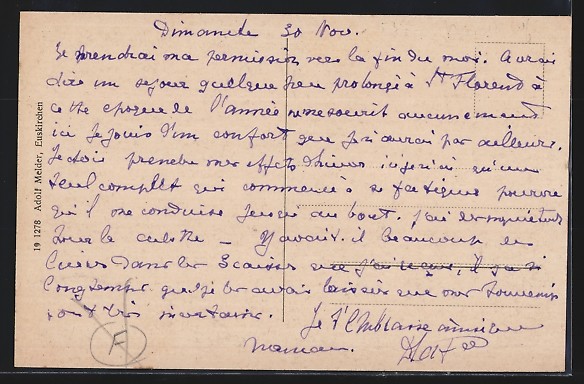 Dimanche 30 Nov.
Je prendrai ma permission vers la fin du mois. A vrai
dire un sejour quelque peu prolongé à St Florend à
cette epoque de l'année ne me sourit aucunement
ici je jouis d'un confort que je n'aurai pas ailleurs.
Je dois prendre mes effets d'hiver ici je n'ai qu'un
seul complet qui commence à se fatiguer pourvu
qu'il me conduise jusqu'au bout. j'ai
pour la culotte - Y avait-il beaucoup de
dans les 3 caisses
longtemps que je les avais laissées que mes souvenirs
sont très
Je t'embrasse ainsi que
maman.
19 1278 Adolf Melder, Euskirchen
F